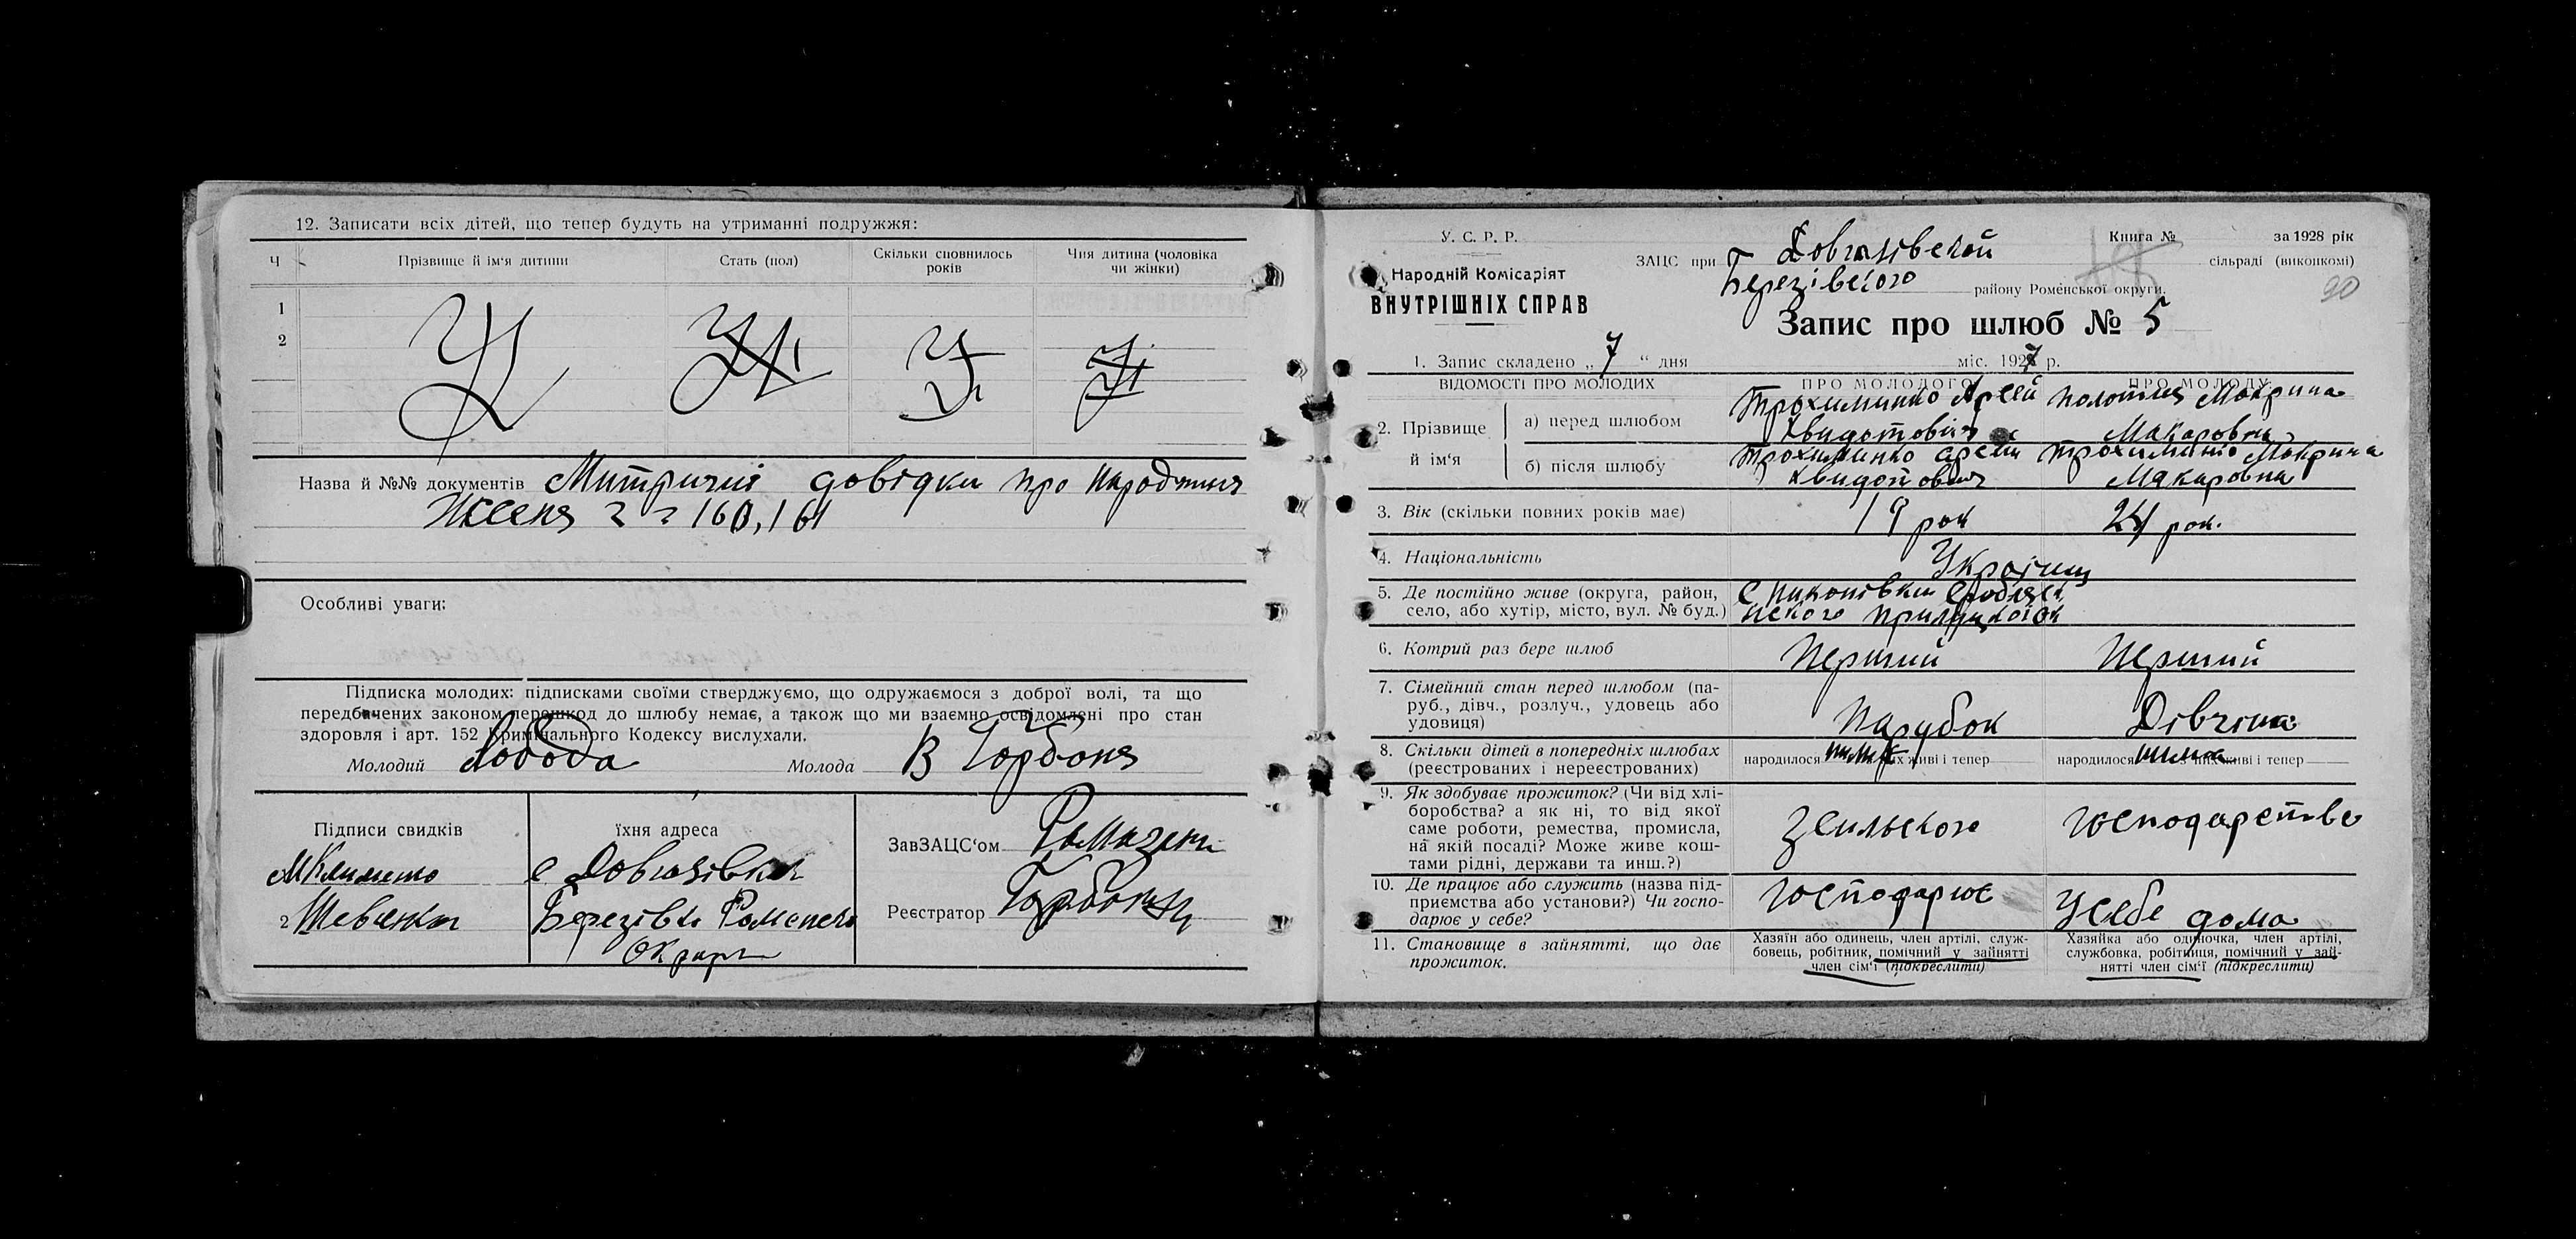 12. Записати всіх дітей, що тепер будуть на утриманні подружжя:
Ч Прізвище й ім'я дитини Стать (пол) Скільки сповнилось років Чия дитина (чоловіка чи жінки)
1
2
Назва й №№ документів Митричні довідки про
160, 161
Особливі уваги:
Підписка молодих: підписками своїми стверджуємо, що одружаємося з доброї волі, та що
передбачених законом перешкод до шлюбу немає, а також що ми взаємно освідомлені про стан
здоровля і арт. 152 Кримінального Кодексу вислухали.
Молодий Лобода Молода В Горбоня
Підписи свидків їхня адреса
ЗавЗАЦС'ом
М Клименко с Довгалівка
Реєстратор
2 Шевченко Березівка
У. С. Р. Р.
Народній Комісаріят
ВНУТРІШНІХ СПРАВ
Книга № за 1928 рік
ЗАЦС при Довгалівской сільраді (виконкомі)
Березівського району Роменської округи.
90
Запис про шлюб № 5
1. Запис складено „ 7 “ дня міс. 1927 р.
ВІДОМОСТІ ПРО МОЛОДИХ ПРО МОЛОДОГО ПРО МОЛОДУ
2. Прізвище й ім'я
а) перед шлюбом Трохименко Арсей Квидотович Макрина Макаровна
б) після шлюбу Трохименко Арсей Квидотович Трохименко Макрина Макаровна
3. Вік (скільки повних років має) 19 рок 24 рок.
4. Національність Українц
5. Де постійно живе (округа, район,
село, або хутір, місто, вул. № буд.)
6. Котрий раз бере шлюб Перший Перший
7. Сімейний стан перед шлюбом (па-
руб., дівч., розлуч., удовець або
удовиця) Парубок Дівчина
8. Скільки дітей в попередніх шлюбах
(реєстрованих і нереєстрованих) народилося нима з них живі і тепер народилося нима з них живі і тепер
9. Як здобуває прожиток? (Чи від хлі-
боробства? а як ні, то від якої
саме роботи, ремества, промисла,
на якій посаді? Може живе кош-
тами рідні, держави та инш.?) Зсильского господарства
10. Де працює або служить (назва під-
приємства або установи?) Чи госпо-
дарює у себе? Господарює У себе дома
11. Становище в зайнятті, що дає
прожиток.
Хазяїн або одинець, член артілі, служ-
бовець, робітник, помічний у зайнятті
член сім'ї (підкреслити)
Хазяйка або одиночка, член артілі,
службовка, робітниця, помічний у зай-
нятті член сім'ї (підкреслити)